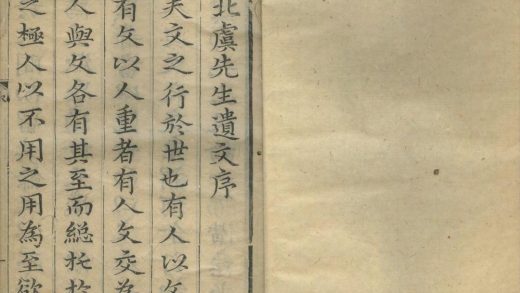 北虞先生遺文序
夫文之行於世也有人以文
有文以人重者有人文交為
人與文各有其至而緫托於
之極人以不用之用為至欲